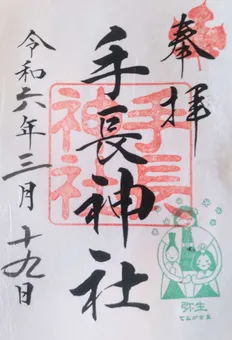 奉拝
手長神社
手長神社
令和六年三月十九日
弥生
てながさま